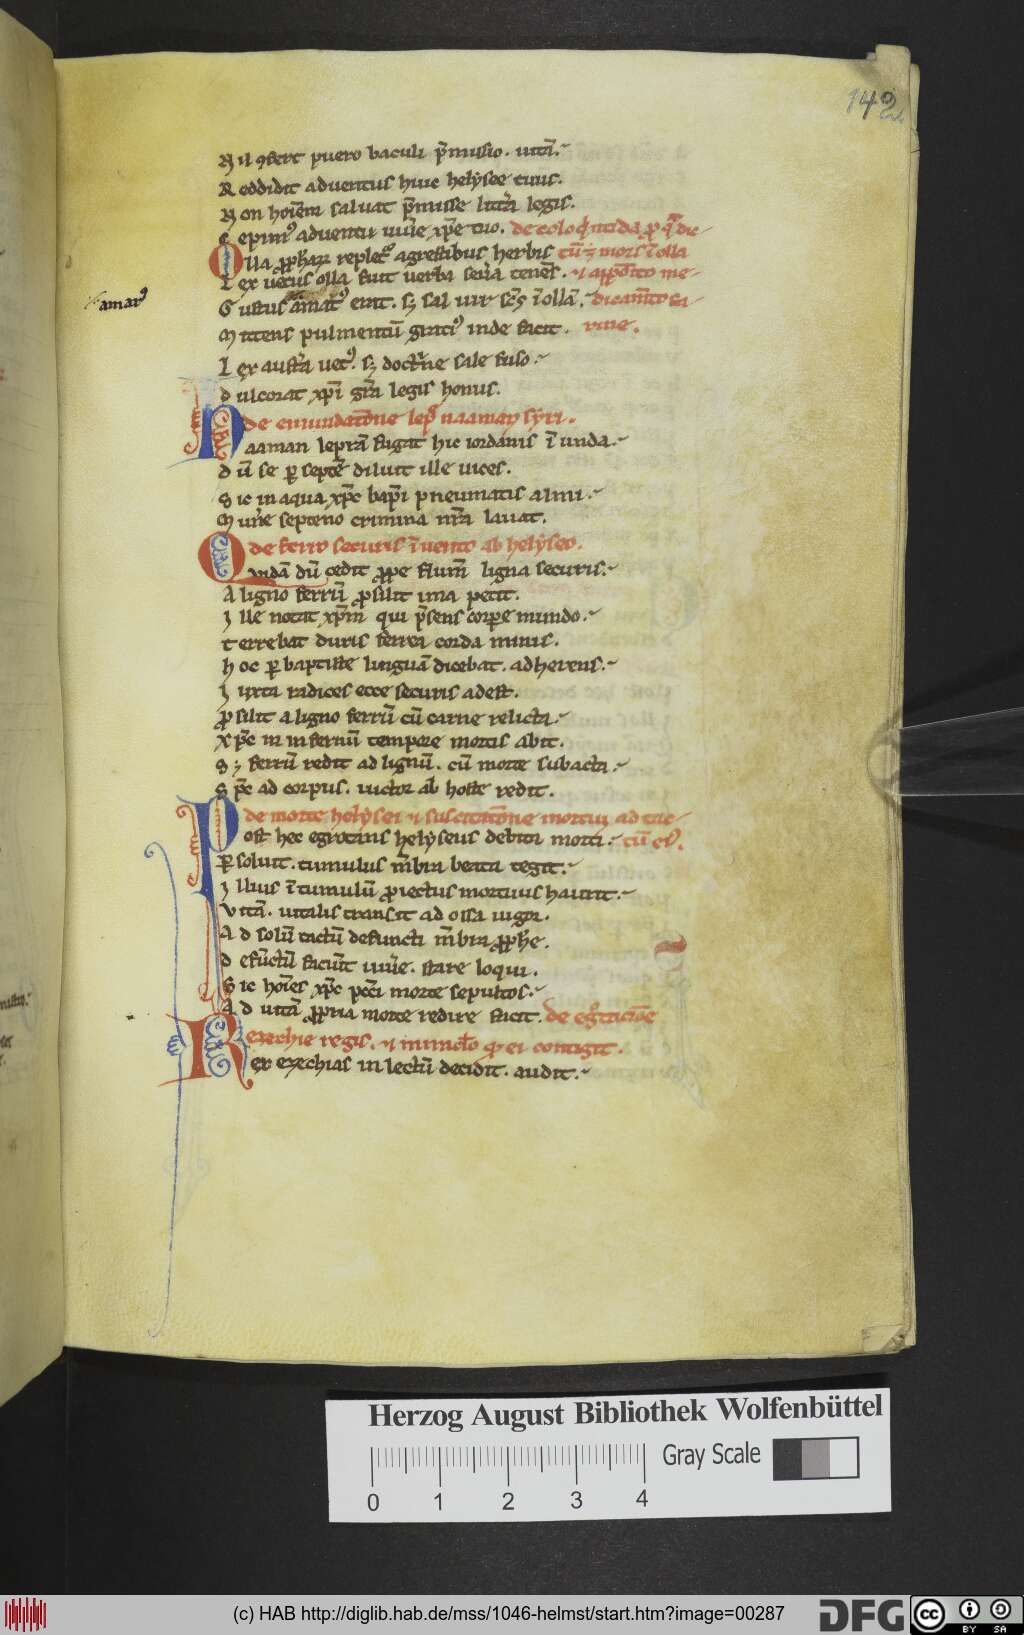 142
N il ꝯfert puero baculi p̄missio. uitā.
R eddidit aduentus huic helẏsee tuus.
N on hoīem saluat p̄misse litt̾a legis.
C epim᷒ aduentu uiu̾e xp̄e tuo. de coloq̇ntida ꝓ q̄ dic-
O lla ꝓph̄aꝝ replet᷒ agrestibus herbis cū ⁊ mors ī olla
L ex uetus olla fuit uerba seu̾a tenēs. ⁊ apposito me-
amar᷒
G ustus amar᷒ erit. sꝫ sal uir sc̄s ī ollā. dicam̄to sa-
M ittens pulmentū grati᷒ inde facit. rine.
L ex aust̾a uet᷒. sꝫ doct̾ne sale fuso
D ulcorat xp̄i gr̄a legis honus.
de emundatōne lep̄ naaman sẏri.
N aaman leprā fugat hic iordanis ī unda.
D ū se ꝑ septē diluit ille uices.
S ic in aqua xp̄c bap̄i pneumatis almi
M un̾e septeno crimina nr̄a lauat.
de ferro securis īuento ab helẏseo.
Q uidā dū cedit ꝓpe flum̄ ligna securis.
A ligno ferrū ꝓsilit ima petit.
I lle notat xp̄m qui p̄sens corpe mundo.
T errebat duris ferrea corda minis.
H oc ꝑ baptiste linguā dicebat. adherens.
I uxta radices ecce securis adest.
P ꝓsilit a ligno ferrū cū carne relicta
X p̄c in infernū tempore mortis abit.
S ꝫ ferrū redit ad lignū. cū morte subacta
S p̄c ad corpus. uictor ab hoste redit.
de morte helẏsei ⁊ suscitatōne mortui ad tac-
P ost hec egrotans helẏseus debita morti. tū ei᷒.
P ersoluit. tumulus m̄bra beata tegit.
I llius ī tumulū ꝓiectus mortuus haurit.
V itā. uitalis transit ad ossa uigor.
A d solū tactū defuncti m̄bra ꝓph̄e.
D efūctū faciūt uiu̾e. stare loqui.
S ic hoīes xp̄c pc̄ci morte sepultos.
A d uitā ꝓpria morte redire facit. de eg̾tacīoe
ezechie regis. ⁊ miraclo qͦ ei contigit.
R ex ezechias in lectū decidit. audit.
Herzog August Bibliothek Wolfenbüttel
Gray Scale
0 1 2 3 4
(c) HAB http://diglib.hab.de/mss/1046-helmst/start.htm?image=00287
DFG
cc BY SA